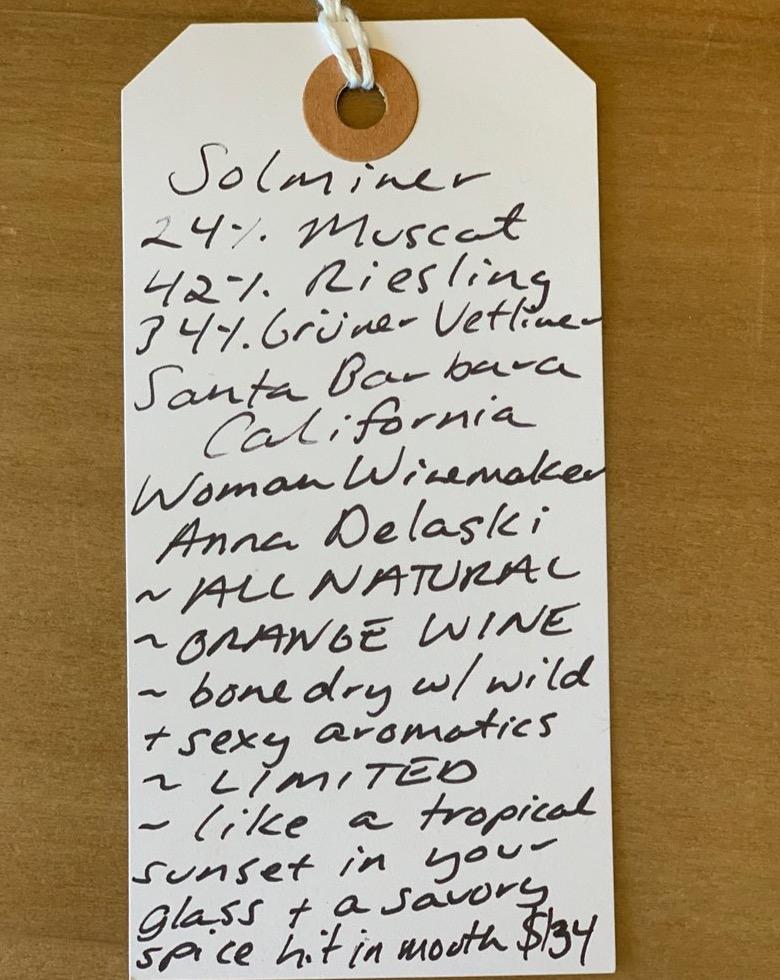 Solminer
24% Muscat
42% Riesling
34% Grüner Vetliner
Santa Barbara
California
Woman Winemaker
Anna Delaski
~ ALL NATURAL
~ ORANGE WINE
~ bone dry w/ wild
+ sexy aromatics
~ LIMITED
~ like a tropical
sunset in your
glass + a savory
spice hit in mouth